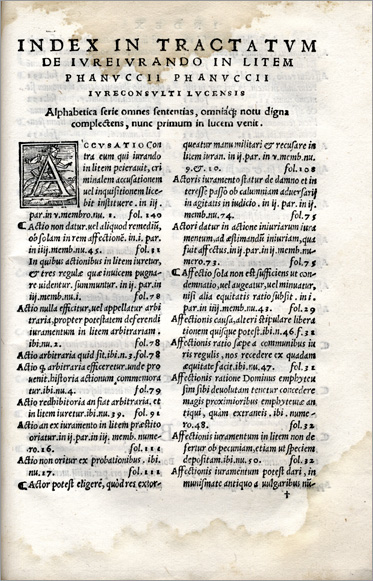 INDEX IN TRACTATVM
DE IVREIVRANDO IN LITEM
PHANVCCII PHANVCCII
IVRECONSVLTI LVCENSIS
Alphabetica serie omnes sententias, omniáq; notu digna
complectens, nunc primum in lucem venit.
ACCVSATIO Con
tra eum qui iurando
in litem peierauit, cri
minalem accusationem
uel inquisitionem lice-
bit instituere. in ij.
par. in v. membro. nu. 1. fol. 140
Actio non datur, uel aliquod remediũ,
ob solam in rem affectionē. in i. par.
in iiij. memb. nu. 45. fol. 11
In quibus actionibus in litem iuretur,
& tres regulæ quæ inuicem pugna-
re uidentur. summuntur. in ij. par in
iiij. memb. nu. i. fol. 78
Actio nulla efficitur, uel appellatur arbi
traria, propter potestatem deferendi
iuramentum in litem arbitrariam.
ibi. nu. 2. fol. 78
Actio arbitraria quid sit, ibi. n. 3. fol. 78
Actio q̃. arbitraria efficeretur, unde pro
uenit, historia actionum, commemora
tur. ibi. nu. 4. fol. 79
Actio redhibitoria an fiat arbitraria, et
in litem iuretur. ibi. nu. 39. fol. 91
Actio an ex iuramento in litem præstito
oriatur. in ij. par. in iij. memb. nume-
ro. 16. fol.
Actio non oritur ex probationibus, ibi.
nu. 17. fol. 111
Actor potest eligere, quòd res extor-
queatur manu militari & recusare in
litem iuran. in ij. par. in v. memb. nu.
9. & 10. fol. 108
Actoris iuramento statur de damno et in
teresse passo ob calumniam aduersarij
in agitatis in iudicio. in ij. par. in iiij.
memb. nu. 74. fol. 75
Actori datur in actione iniuriarum iura
mentum, ad æstimandũ iniuriam, quã
fuit affectus. in ij. par. in iij. memb. nu-
mero. 73. fol. 75
Affectio sola non est sufficiens ut con-
demnatio, uel augeatur, uel minuatur,
nisi alia equitatis ratio subsit. in i.
par. in iiij memb. nu. 43. fol. 29
Affectionis causa, alteri stipulare libera
tionem quisque potest. ibi. n. 46. f. 32
Affectionis ratio sæpe a communibus iu
ris regulis, nos recedere ex quadam
æquitate facit. ibi. nu. 47. fol. 31
Affectionis ratione Dominus emphyteu
sim sibi deuolutam tenetur concedere
magis proximioribus emphyteutæ an
tiqui, quàm extraneis, ibi. nume-
ro. 48. fol. 32
Affectionis iuramentum in litem non de
fertur ob pecuniam, etiam ut speciem
depositam. ibi. nu. 50. fol. 32
Affectionis iuramentum potest dari, in
numismate antiquo a uulgaribus nu-
†